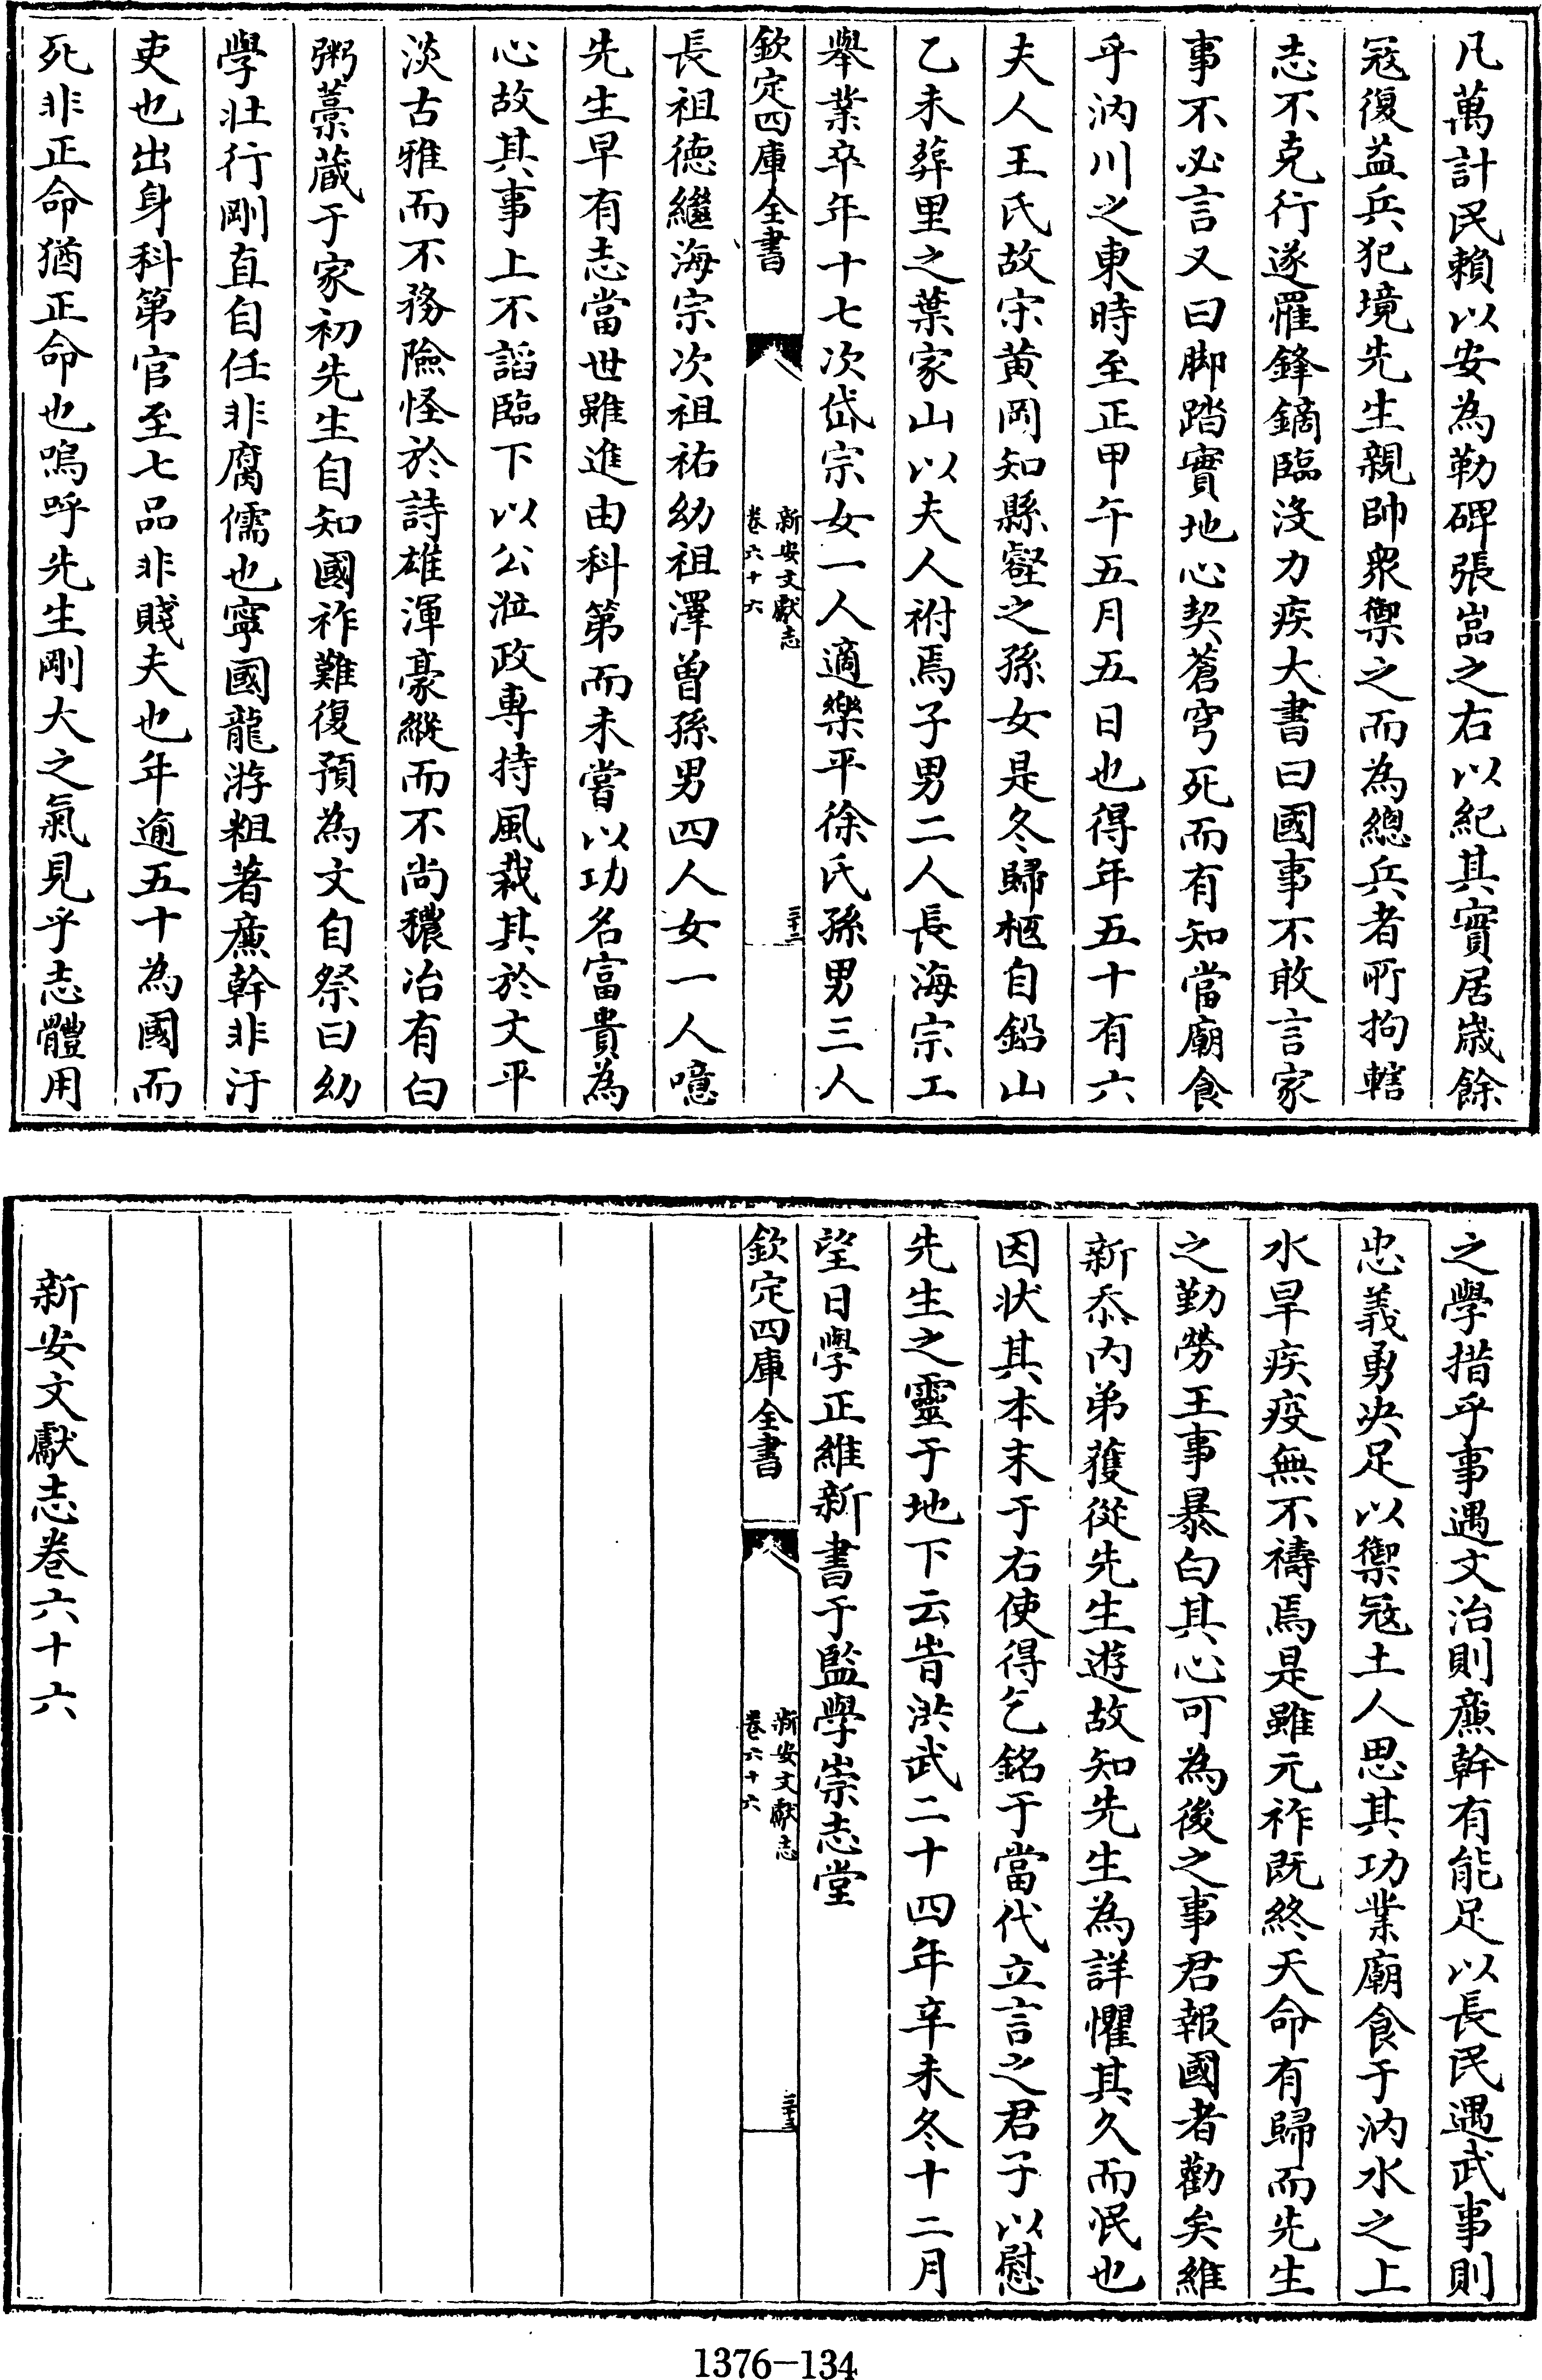 凡萬計民賴以安為勒碑張嵓之右以紀其實居歲餘
冦復益兵犯境先生親帥衆禦之而為總兵者所拘轄
志不克行遂罹鋒鏑臨沒力疾大書曰國事不敢言家
事不必言又曰脚踏實地心契蒼穹死而有知當廟食
乎汭川之東時至正甲午五月五日也得年五十有六
夫人王氏故宋黄岡知縣壑之孫女是冬歸柩自鉛山
乙未葬里之葉家山以夫人祔焉子男二人長海宗工
舉業卒年十七次岱宗女一人適樂平徐氏孫男三人
欽定四庫全書
新安文獻志
卷六十六
三十二
長祖德繼海宗次祖祐幼祖澤曽孫男四人女一人噫
先生早有志當世雖進由科第而未嘗以功名富貴為
心故其事上不謟臨下以公涖政專持風裁其於文平
淡古雅而不務險怪於詩雄渾豪縱而不尚穠冶有白
粥藁藏于家初先生自知國祚難復預為文自祭曰幼
學壯行剛直自任非腐儒也寧國龍游粗著亷幹非汙
吏也出身科第官至七品非賤夫也年逾五十為國而
死非正命猶正命也嗚呼先生剛大之氣見乎志體用
之學措乎事遇文治則亷幹有能足以長民遇武事則
忠義勇决足以禦冦土人思其功業廟食于汭水之上
水旱疾疫無不禱焉是雖元祚既終天命有歸而先生
之勤勞王事暴白其心可為後之事君報國者勸矣維
新忝内弟獲從先生遊故知先生為詳懼其久而泯也
因状其本末于右使得乞銘于當代立言之君子以慰
先生之靈于地下云旹洪武二十四年辛未冬十二月
望日學正維新書于監學崇志堂
欽定四庫全書
新安文獻志
卷六十六
三十三
新安文獻志卷六十六
1376-134